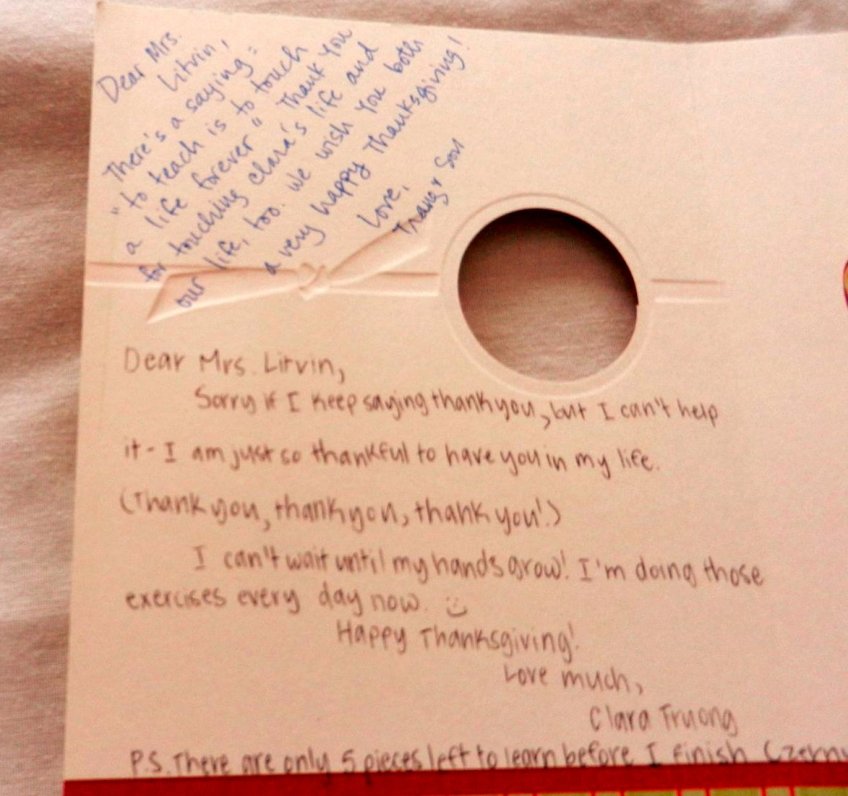 Dear Mrs.
Litvin,
There's a saying:
"to teach is to touch
a life forever" Thank you
for touching Clara's life and
our life, too. We wish you both
a very happy Thanksgiving!
Love,
Trang & Son
Dear Mrs. Litvin,
Sorry if I keep saying thank you, but I can't help
it - I am just so thankful to have you in my life.
(Thank you, thank you, thank you!)
I can't wait until my hands grow! I'm doing those
exercises every day now.
Happy Thanksgiving!
Love much,
Clara Truong
P.S. There are only 5 pieces left to learn before I finish Czerny